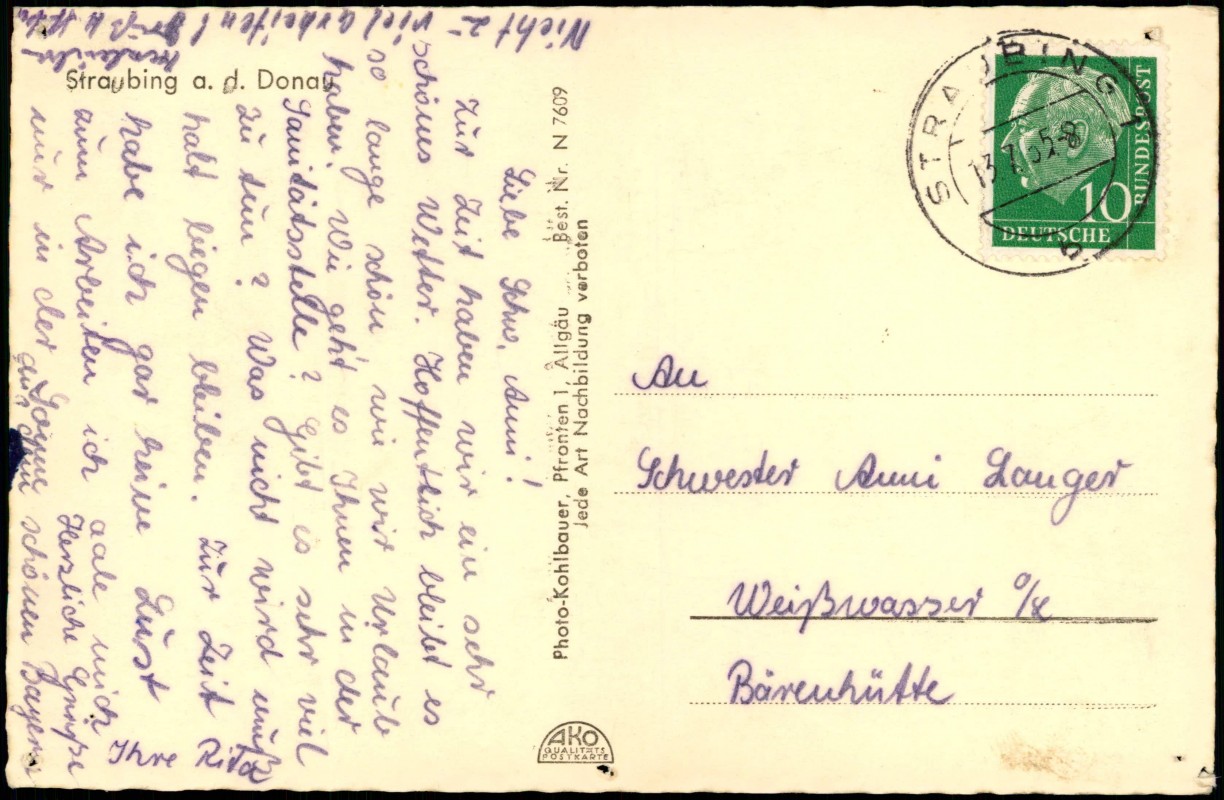 Straubing a. d. Donau
Liebe Schw. Anni!
Zur Zeit haben wir ein sehr
schönes Wetter. Hoffentlich bleibt es
so lange schön wie wir Urlaub
haben. Wie geht es Ihnen in der
Sanitätsstelle? Gibt es sehr viel
zu tun? Was nicht wird muß
halt liegen bleiben. Zur Zeit
habe ich gar keine Lust
zum Arbeiten ich aale mich
nur in der Sonne
Herzliche Grüße
aus dem schönen Bayern
Ihre Rita
Nicht zu
viel arbeiten!
Photo-Kohlbauer, Pfronten 1, Allgäu Best. Nr. N 7609
Jede Art Nachbildung verboten
AKO
QUALITÄTS
POSTKARTE
STRAUBING 1
13.7.55-8
b
10
DEUTSCHE
BUNDESPOST
An
Schwester Anni Langer
Weißwasser O/L
Bärenhütte